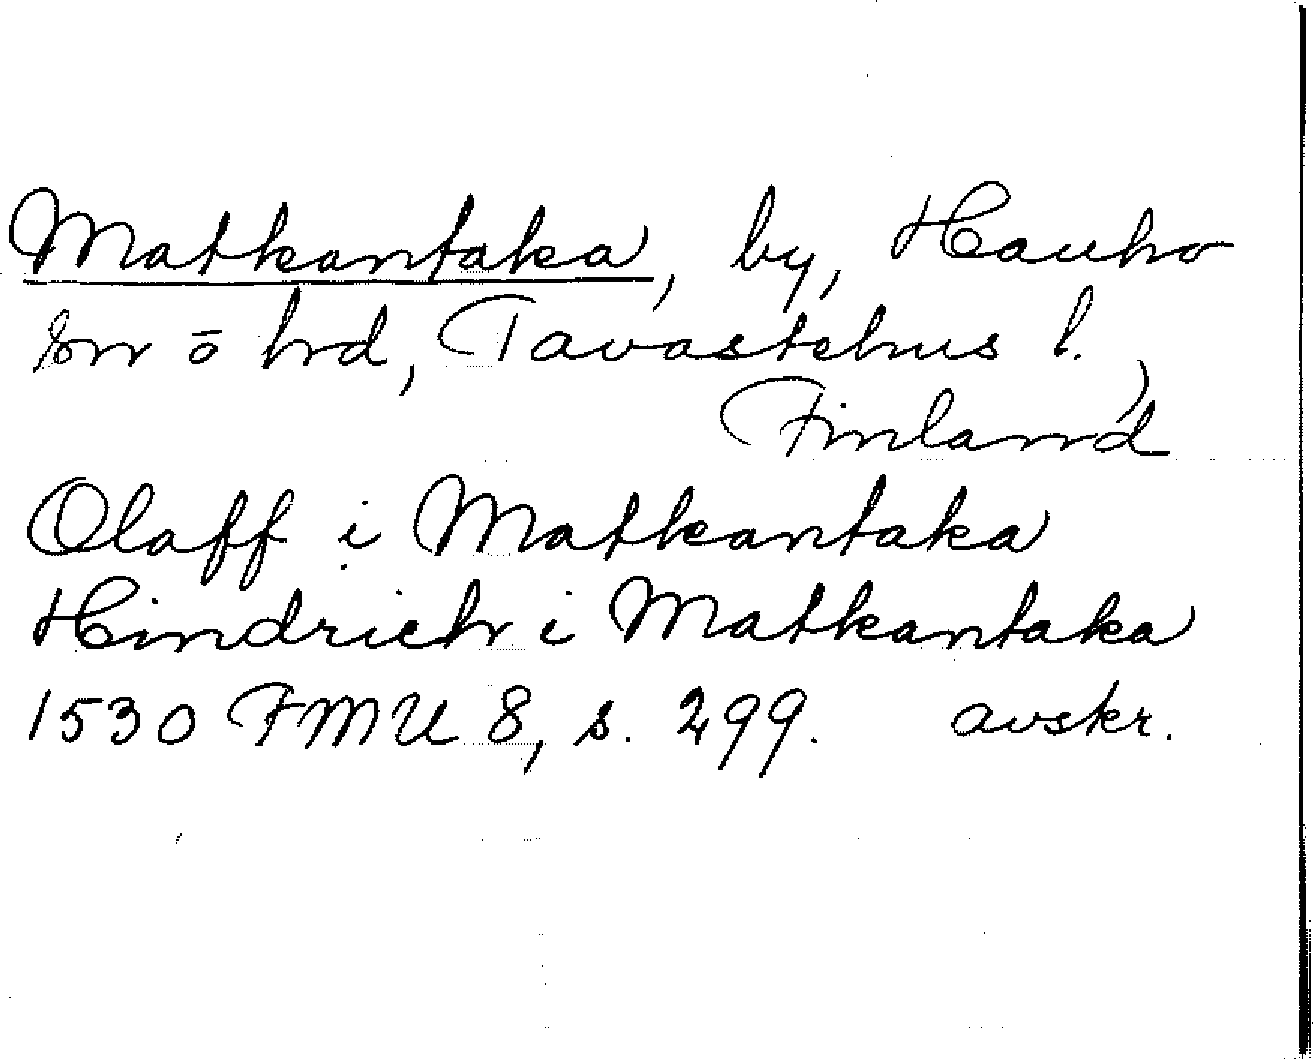 Matkantaka, by, Hauho
sn o hrd, Tavastehus l.,
Finland
Olaff i Matkantaka
Hindrich i Matkantaka
1530 FMU 8, s. 299. avskr.